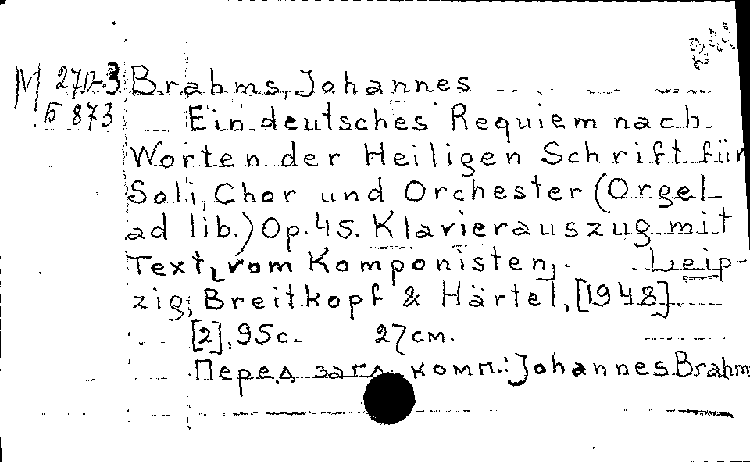 М 270-3 Brahms, Johannes
Б 873 Ein deutsches Requiem nach
Worten der Heiligen Schrift für
Soli, Chor und Orchester (Orgel
ad lib.) Op. 45. Klavierauszug mit
Text, vom Komponisten. Leip-
zig, Breitkopf & Härtel, [1948]
[2], 95 с. 27 см.
Перед загл. комп.: Johannes Brahm